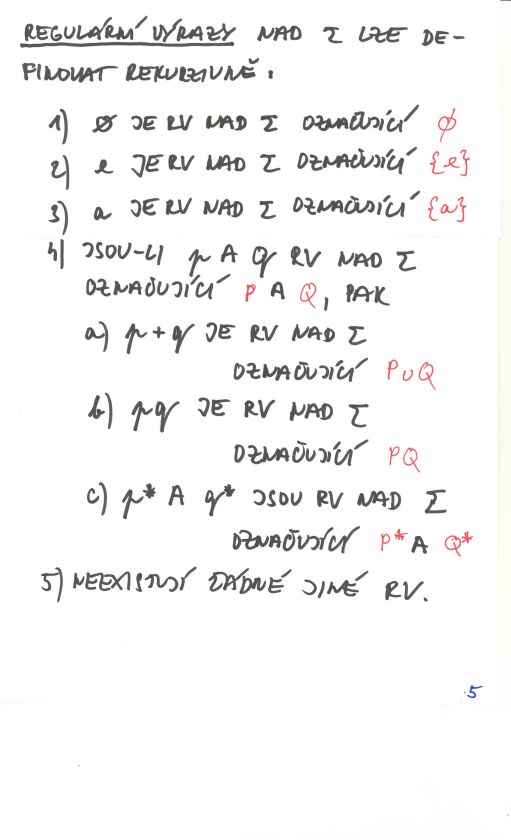 REGULÁRNÍ VÝRAZY NAD Σ LZE DE-
FINOVAT REKURZIVNĚ:
1) ∅ JE RV NAD Σ OZNAČUJÍCÍ ∅
2) e JE RV NAD Σ OZNAČUJÍCÍ {e}
3) a JE RV NAD Σ OZNAČUJÍCÍ {a}
4) JSOU-LI p A q RV NAD Σ
OZNAČUJÍCÍ P A Q, PAK
a) p+q JE RV NAD Σ
OZNAČUJÍCÍ P∪Q
b) pq JE RV NAD Σ
OZNAČUJÍCÍ PQ
c) p* A q* JSOU RV NAD Σ
OZNAČUJÍCÍ P* A Q*
5) NEEXISTUJÍ ŽÁDNÉ JINÉ RV.
5